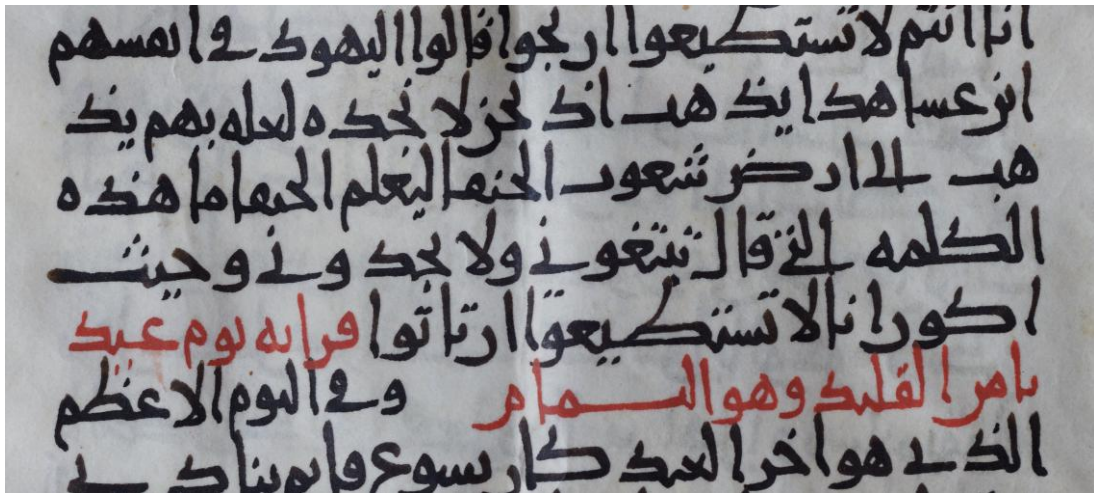 انا انتم لا تستطيعوا ان تجوا قالوا اليهود في انفسهم
اين عسا هذا يذهب اذ نحن لا نجده لعله بهم يذ
هب الى ارض شعوب الحنفا ليعلم الحنفا ما هذه
الكلمه التي قال تبتغوني ولا تجدوني وحيث
اكون انا لا تستطيعوا ان تاتوا قرايه يوم عيد
ثامن وهو وفي اليوم الاعظم
الذي هو اخر العيد كان يسوع قايم ينادي